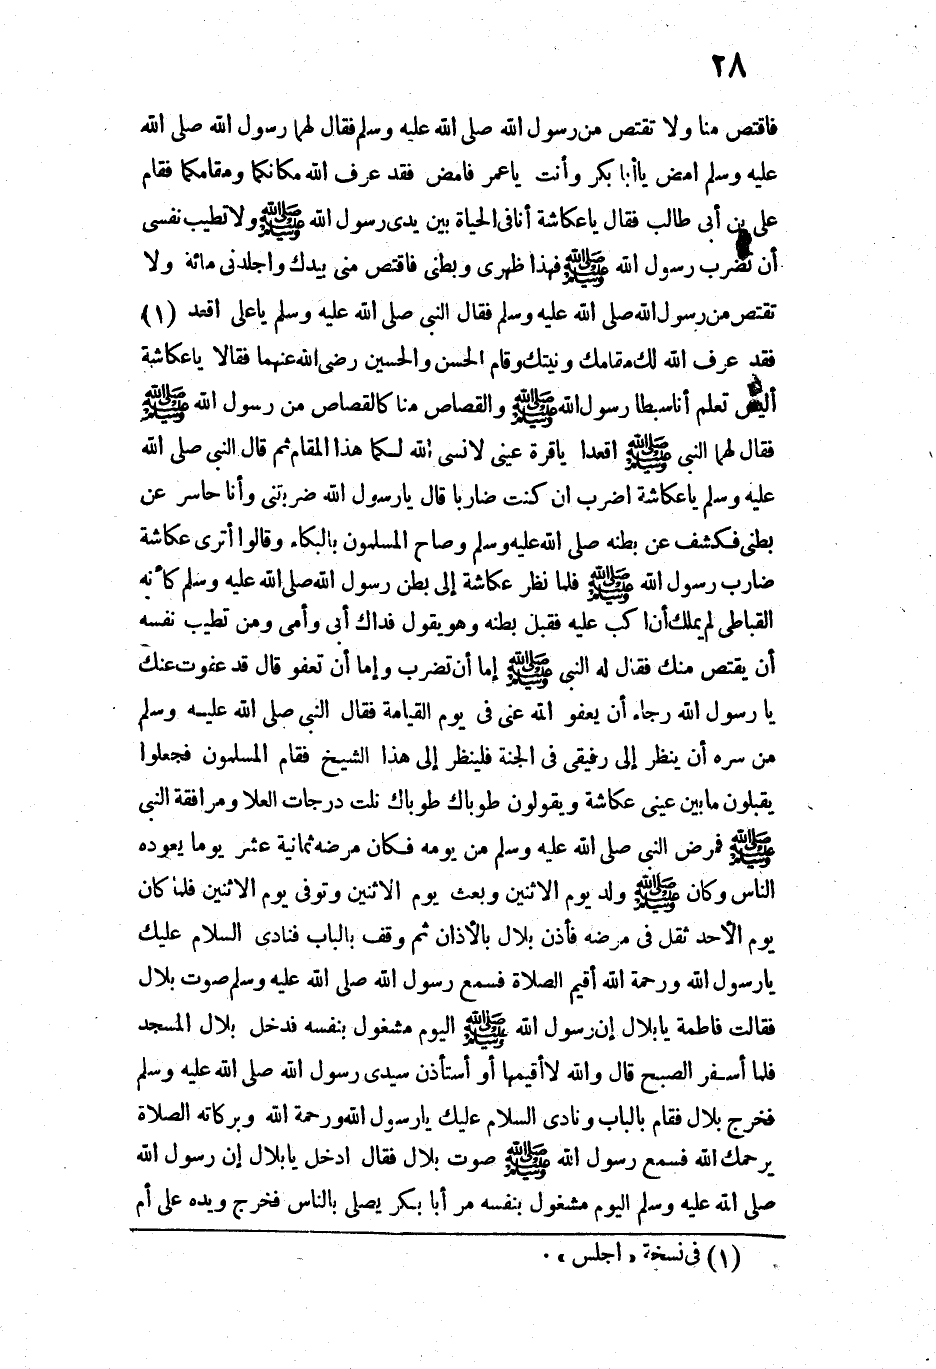 ٢٨
فاقتص منا ولا تقتص من رسول الله صلى الله عليه وسلم فقال لهما رسول الله صلى الله
عليه وسلم امض ياأبا بكر وأنت ياعمر فامض فقد عرف الله مكانكما ومقامكما فقام
على بن أبى طالب فقال ياعكاشة أنا فى الحياة بين يدى رسول الله ﷺ ولا تطيب نفسى
أن تضرب رسول الله ﷺ فهذا ظهرى وبطنى فاقتص منى بيدك واجلدنى مائة ولا
تقتص من رسول الله صلى الله عليه وسلم فقال النبى صلى الله عليه وسلم ياعلى اقعد (١)
فقد عرف الله لك مقامك ونيتك وقام الحسن والحسين رضى الله عنهما فقالا ياعكاشة
أليس تعلم أنا سبطا رسول الله ﷺ والقصاص منا كالقصاص من رسول الله ﷺ
فقال لهما النبى ﷺ اقعدا ياقرة عينى لا نسى الله لكما هذا المقام ثم قال النبى صلى الله
عليه وسلم ياعكاشة اضرب ان كنت ضاربا قال يارسول الله ضربتنى وأنا حاسر عن
بطنى فكشف عن بطنه صلى الله عليه وسلم وصاح المسلمون بالبكاء وقالوا أترى عكاشة
ضارب رسول الله ﷺ فلما نظر عكاشة إلى بطن رسول الله صلى الله عليه وسلم كأنه
القباطى لم يملك أن اكب عليه فقبل بطنه وهو يقول فداك أبى وأمى ومن تطيب نفسه
أن يقتص منك فقال له النبى ﷺ إما أن تضرب وإما أن تعفو قال قد عفوت عنك
يا رسول الله رجاء أن يعفو الله عنى فى يوم القيامة فقال النبى صلى الله عليه وسلم
من سره أن ينظر إلى رفيقى فى الجنة فلينظر إلى هذا الشيخ فقام المسلمون فجعلوا
يقبلون مابين عينى عكاشة ويقولون طوباك طوباك نلت درجات العلا ومرافقة النبى
ﷺ فمرض النبى صلى الله عليه وسلم من يومه فكان مرضه ثمانية عشر يوما يعوده
الناس وكان ﷺ ولد يوم الاثنين وبعث يوم الاثنين وتوفى يوم الاثنين فلما كان
يوم الأحد ثقل فى مرضه فأذن بلال بالأذان ثم وقف بالباب فنادى السلام عليك
يارسول الله ورحمة الله أقيم الصلاة فسمع رسول الله صلى الله عليه وسلم صوت بلال
فقالت فاطمة يابلال إن رسول الله ﷺ اليوم مشغول بنفسه فدخل بلال المسجد
فلما أسفر الصبح قال والله لا أقيمها أو أستأذن سيدى رسول الله صلى الله عليه وسلم
فخرج بلال فقام بالباب ونادى السلام عليك يارسول الله ورحمة الله وبركاته الصلاة
يرحمك الله فسمع رسول الله ﷺ صوت بلال فقال ادخل يابلال إن رسول الله
صلى الله عليه وسلم اليوم مشغول بنفسه مر أبا بكر يصلى بالناس فخرج ويده على أم
(١) فى نسخة «اجلس» .